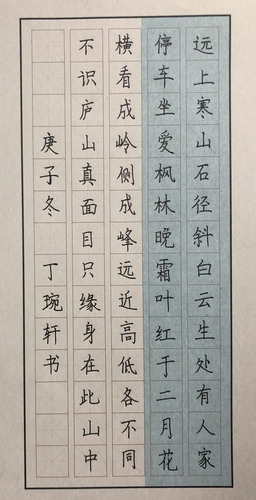 远上寒山石径斜白云生处有人家
停车坐爱枫林晚霜叶红于二月花
横看成岭侧成峰远近高低各不同
不识庐山真面目只缘身在此山中
庚子冬 丁琬轩书